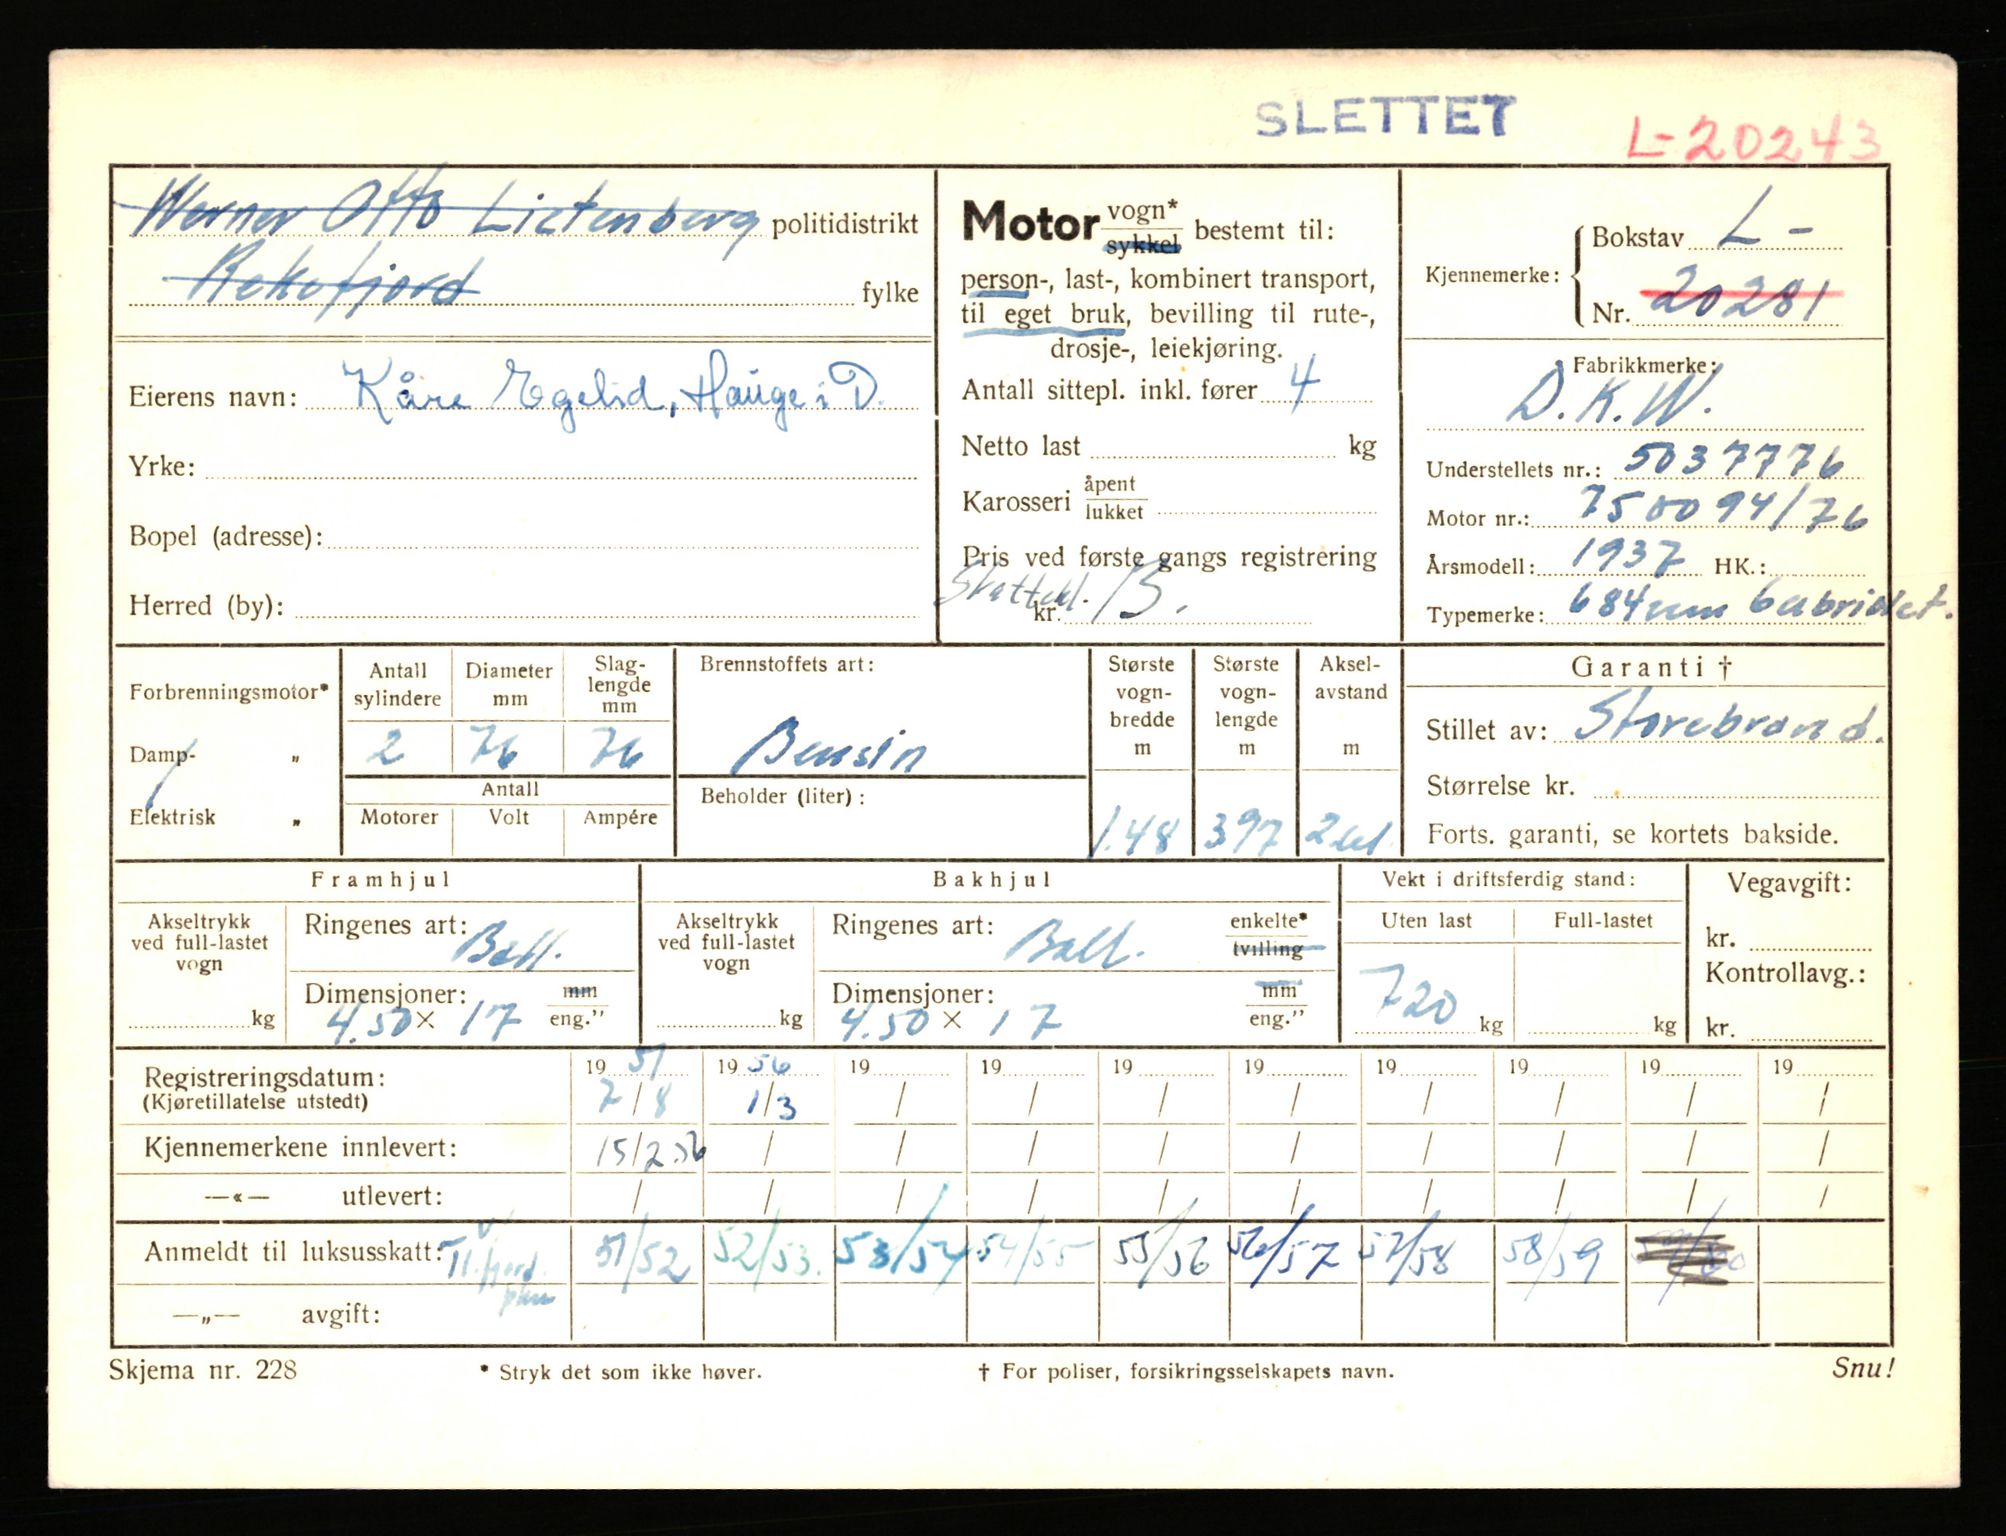 SLETTET
L-20243
Werner Otto Lictenberg politidistrikt
Rekefjord fylke
Eierens navn: Kåre Egelid, Hauge i D.
Yrke:
Bopel (adresse):
Herred (by):
Motor vogn* sykkel bestemt til:
person-, last-, kombinert transport,
til eget bruk, bevilling til rute-,
drosje-, leiekjøring.
Antall sittepl. inkl. fører 4
Netto last kg
Karosseri åpent lukket
Pris ved første gangs registrering
Skattekl. B.
kr.
Kjennemerke: Bokstav L-
Nr. 20281
Fabrikkmerke:
D.K.W.
Understellets nr.: 5037776
Motor nr.: 750094/76
Årsmodell: 1937 HK.:
Typemerke: 684 cabriolet.
Forbrenningsmotor*
Damp- „
Elektrisk „
Antall sylindere
Diameter mm
Slag-lengde mm
2 76 76
Antall
Motorer Volt Ampére
Brennstoffets art:
Bensin
Beholder (liter):
Største vogn-bredde m
1.48
Største vogn-lengde m
397
Aksel-avstand m
Garanti †
Stillet av: Storebrand.
Størrelse kr.
Forts. garanti, se kortets bakside.
Framhjul
Akseltrykk ved full-lastet vogn
kg
Ringenes art: Ball.
Dimensjoner: mm
4.50 × 17 eng."
Bakhjul
Akseltrykk ved full-lastet vogn
kg
Ringenes art: Ball. enkelte* tvilling
Dimensjoner: mm
4.50 × 17 eng."
Vekt i driftsferdig stand:
Uten last Full-lastet
720 kg kg
Vegavgift:
kr.
Kontrollavg.:
kr.
19 51 19 56 19 19 19 19 19 19 19 19
Registreringsdatum:
(Kjøretillatelse utstedt) 7/8 1/3 / / / / / / / /
Kjennemerkene innlevert: 15/2 56 / / / / / / / / /
—«— utlevert: / / / / / / / / / /
Anmeldt til luksusskatt: 51/52 52/53. 53/54 54/55 55/56 56/57 57/58 58/59
—„— avgift:
Skjema nr. 228 * Stryk det som ikke høver. † For poliser, forsikringsselskapets navn. Snu!